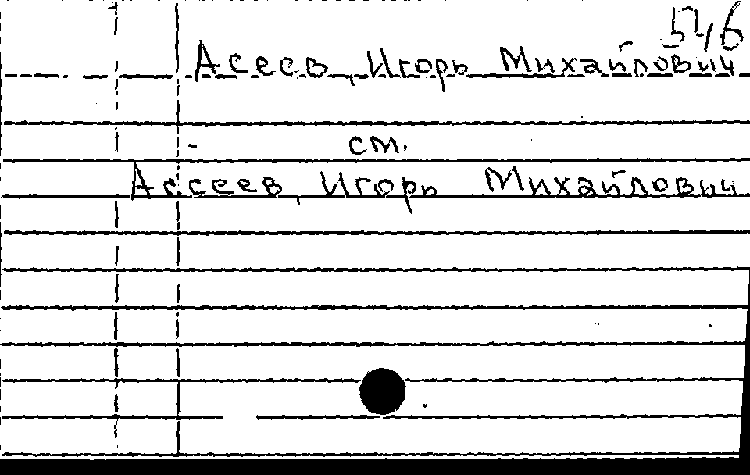 546
Асеев, Игорь Михайлович
см.
Ассеев, Игорь Михайлович